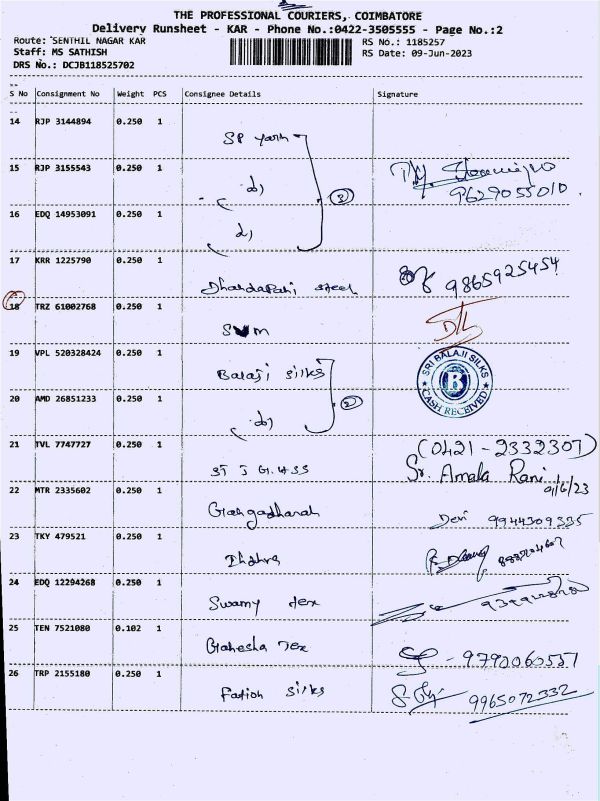 THE PROFESSIONAL COURIERS, COIMBATORE
Delivery Runsheet - KAR - Phone No.:0422-3505555 - Page No.:2
Route: SENTHIL NAGAR KAR
RS No.: 1185257
Staff: MS SATHISH
RS Date: 09-Jun-2023
DRS No.: DCJB118525702
S No Consignment No Weight PCS Consignee Details Signature
14 RJP 3144894 0.250 1
SP yarn
15 RJP 3155543 0.250 1
d) 3
9629055010
16 EDQ 14953091 0.250 1
d)
17 KRR 1225790 0.250 1
Dhandapani steel 9865925454
18 TRZ 61002768 0.250 1
SVM
19 VPL 520328424 0.250 1
Balaji silks
SRI BALAJI SILKS
B
CASH RECEIVED
20 AMD 26851233 0.250 1
d) 2
21 TVL 7747727 0.250 1
(0421 - 2332307)
ST J G.H.SS Sr. Amala Rani
9/6/23
22 MTR 2335602 0.250 1
Gangadharan Devi 9944309335
23 TKY 479521 0.250 1
24 EDQ 12294268 0.250 1
Swamy tex
25 TEN 7521080 0.102 1
Ganesha Tex - 9790060557
26 TRP 2155180 0.250 1
silks 9965072332